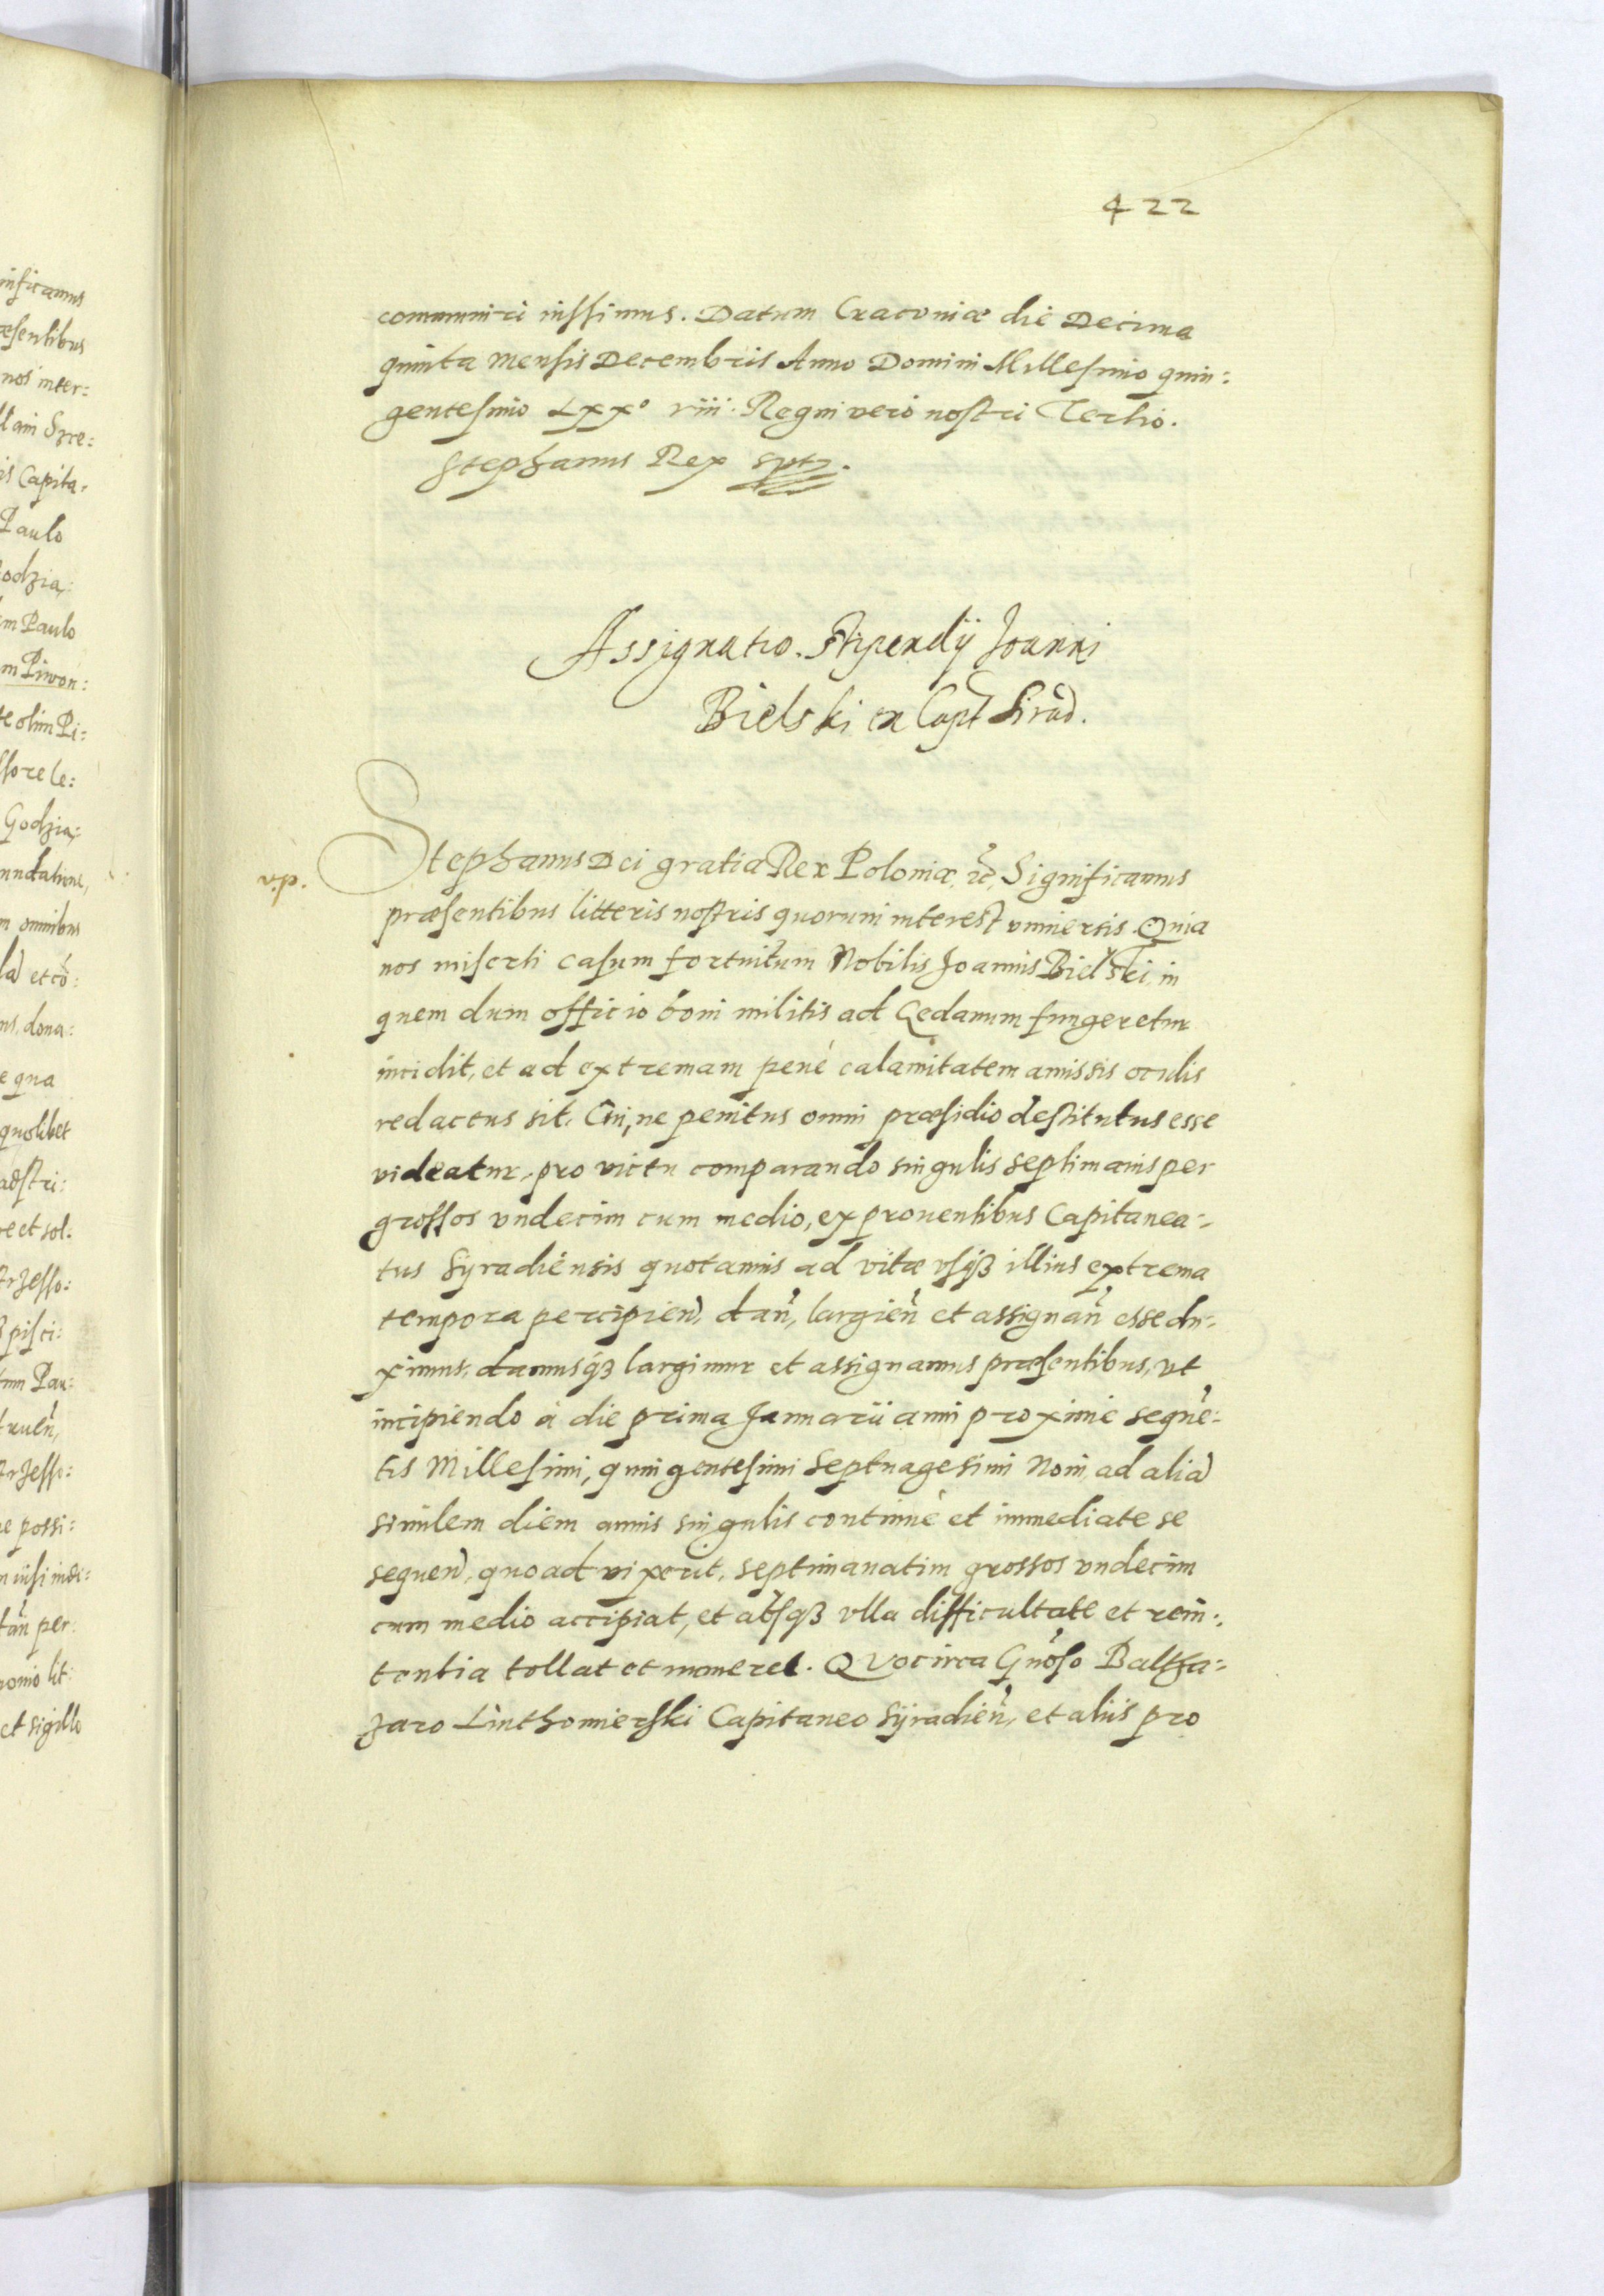 422
communiri iussimus. Datum Cracoviæ die Decima
quinta mensis Decembris Anno Domini Millesimo quin:
gentesimo Lxx° viii. Regni vero nostri Tertio.
Stephanus Rex sptz.
Assignatio. Stipendij Joanni
Bielski ex Capt Sirad.
Stephanus Dei gratia Rex Poloniæ, etc, Significamus
præsentibus litteris nostris quorum interest vniuersis. Quia
nos miserti casum fortuitum Nobilis Joannis Bielski, in
quem dum officio boni militis ad Gedanum fungeretur
incidit, et ad extremam penè calamitatem amissis oculis
redactus sit. Cui, ne penitus omni præsidio destitutus esse
videatur, pro victu comparando singulis septimanis per
grossos vndecim cum medio, ex prouentibus Capitanea:
tus Syradiensis quotannis ad vitæ vsq3 illius extrema
tempora percipien, dan, largien et assignan esse du:
ximus, damusq3 largimur et assignamus præsentibus, vt
incipiendo à die prima Januarii anni proxime sequē:
tis Millesimi, quingentesimi Septuagesimi Noni, ad aliā
similem diem annis singulis continuè et immediate se
sequen, quoad vixerit, septimanatim grossos vndecim
cum medio accipiat, et absq3 vlla difficultate et reni:
tentia tollat et moneret. Quocirca Gnoso Baltha:
zaro Linthomierski Capitaneo Syradien, et aliis pro
vip.
nificamus
æsentibus
nos inter:
is Capita:
Paulo
m Paulo
m Piwon:
te olim Pi:
ssore le:
Godzia:
m omnibus
et cō:
ns, dona:
e qua
quolibet
re et sol:
pisci:
mm Pau:
e possi:
tan per:
et sigillo